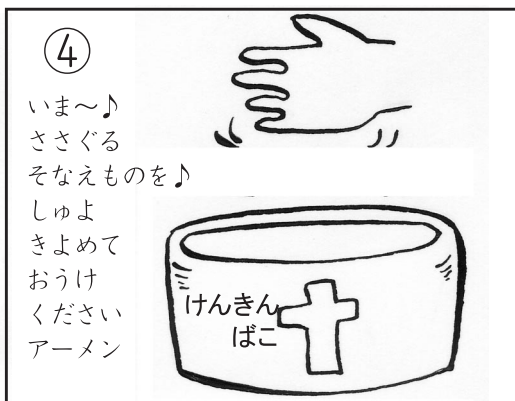 ④
いま～♪
ささぐる
そなえものを♪
しゅよ
きよめて
おうけ
ください
アーメン
けんきん
ばこ